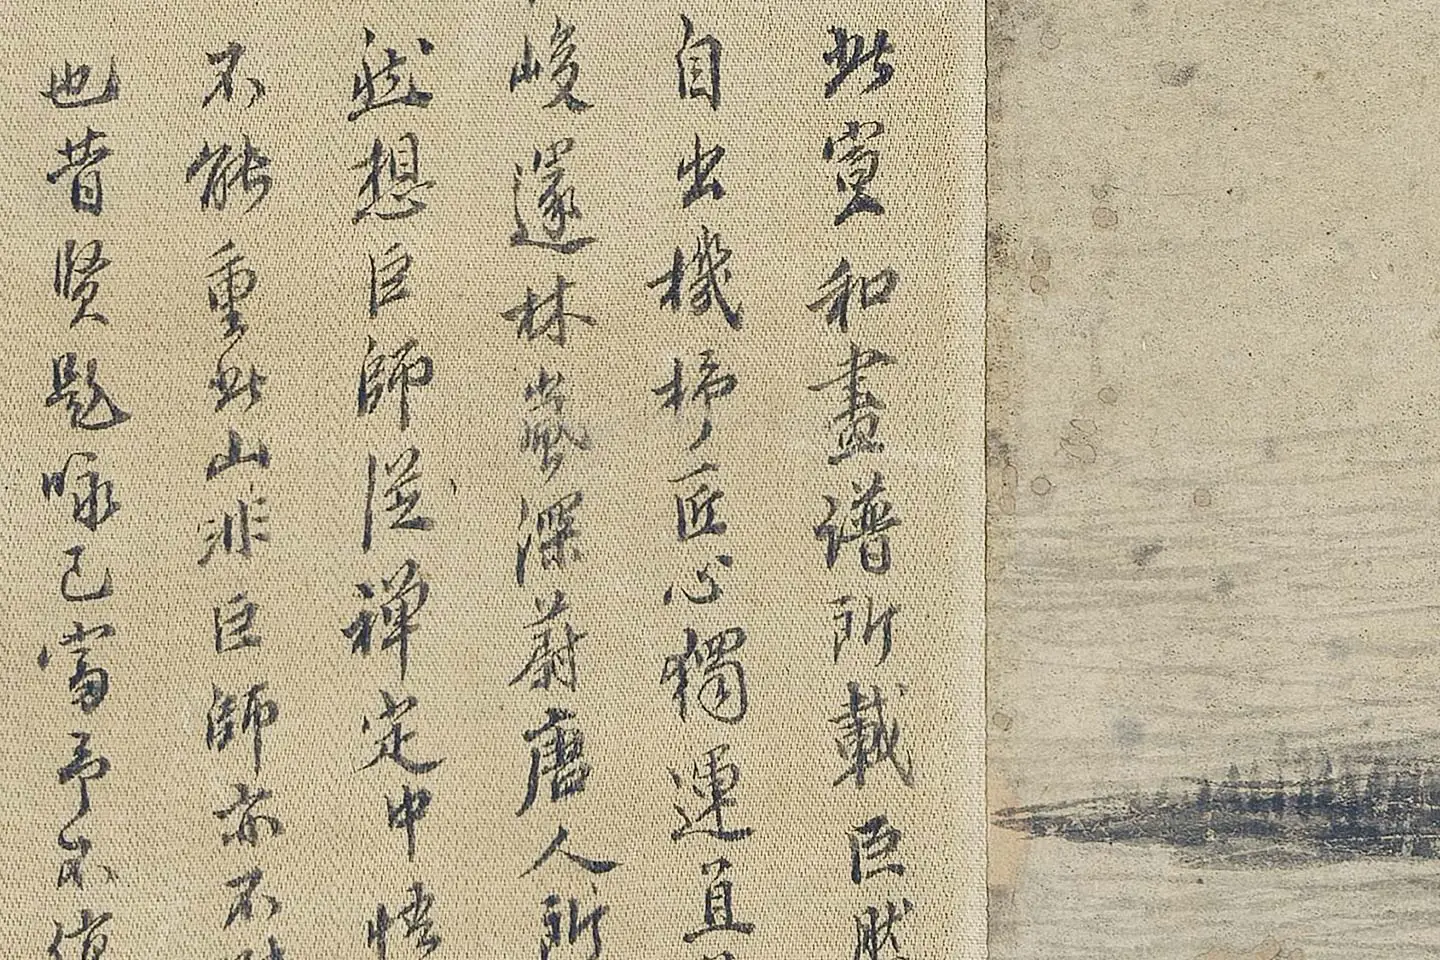 此宣和畫譜所載巨然
自出機杼匠心獨運直
峻邃林巒深蔚唐人所
然想巨師從禪定中悟
不能重此山非巨師亦不
也昔賢題咏已富予不復